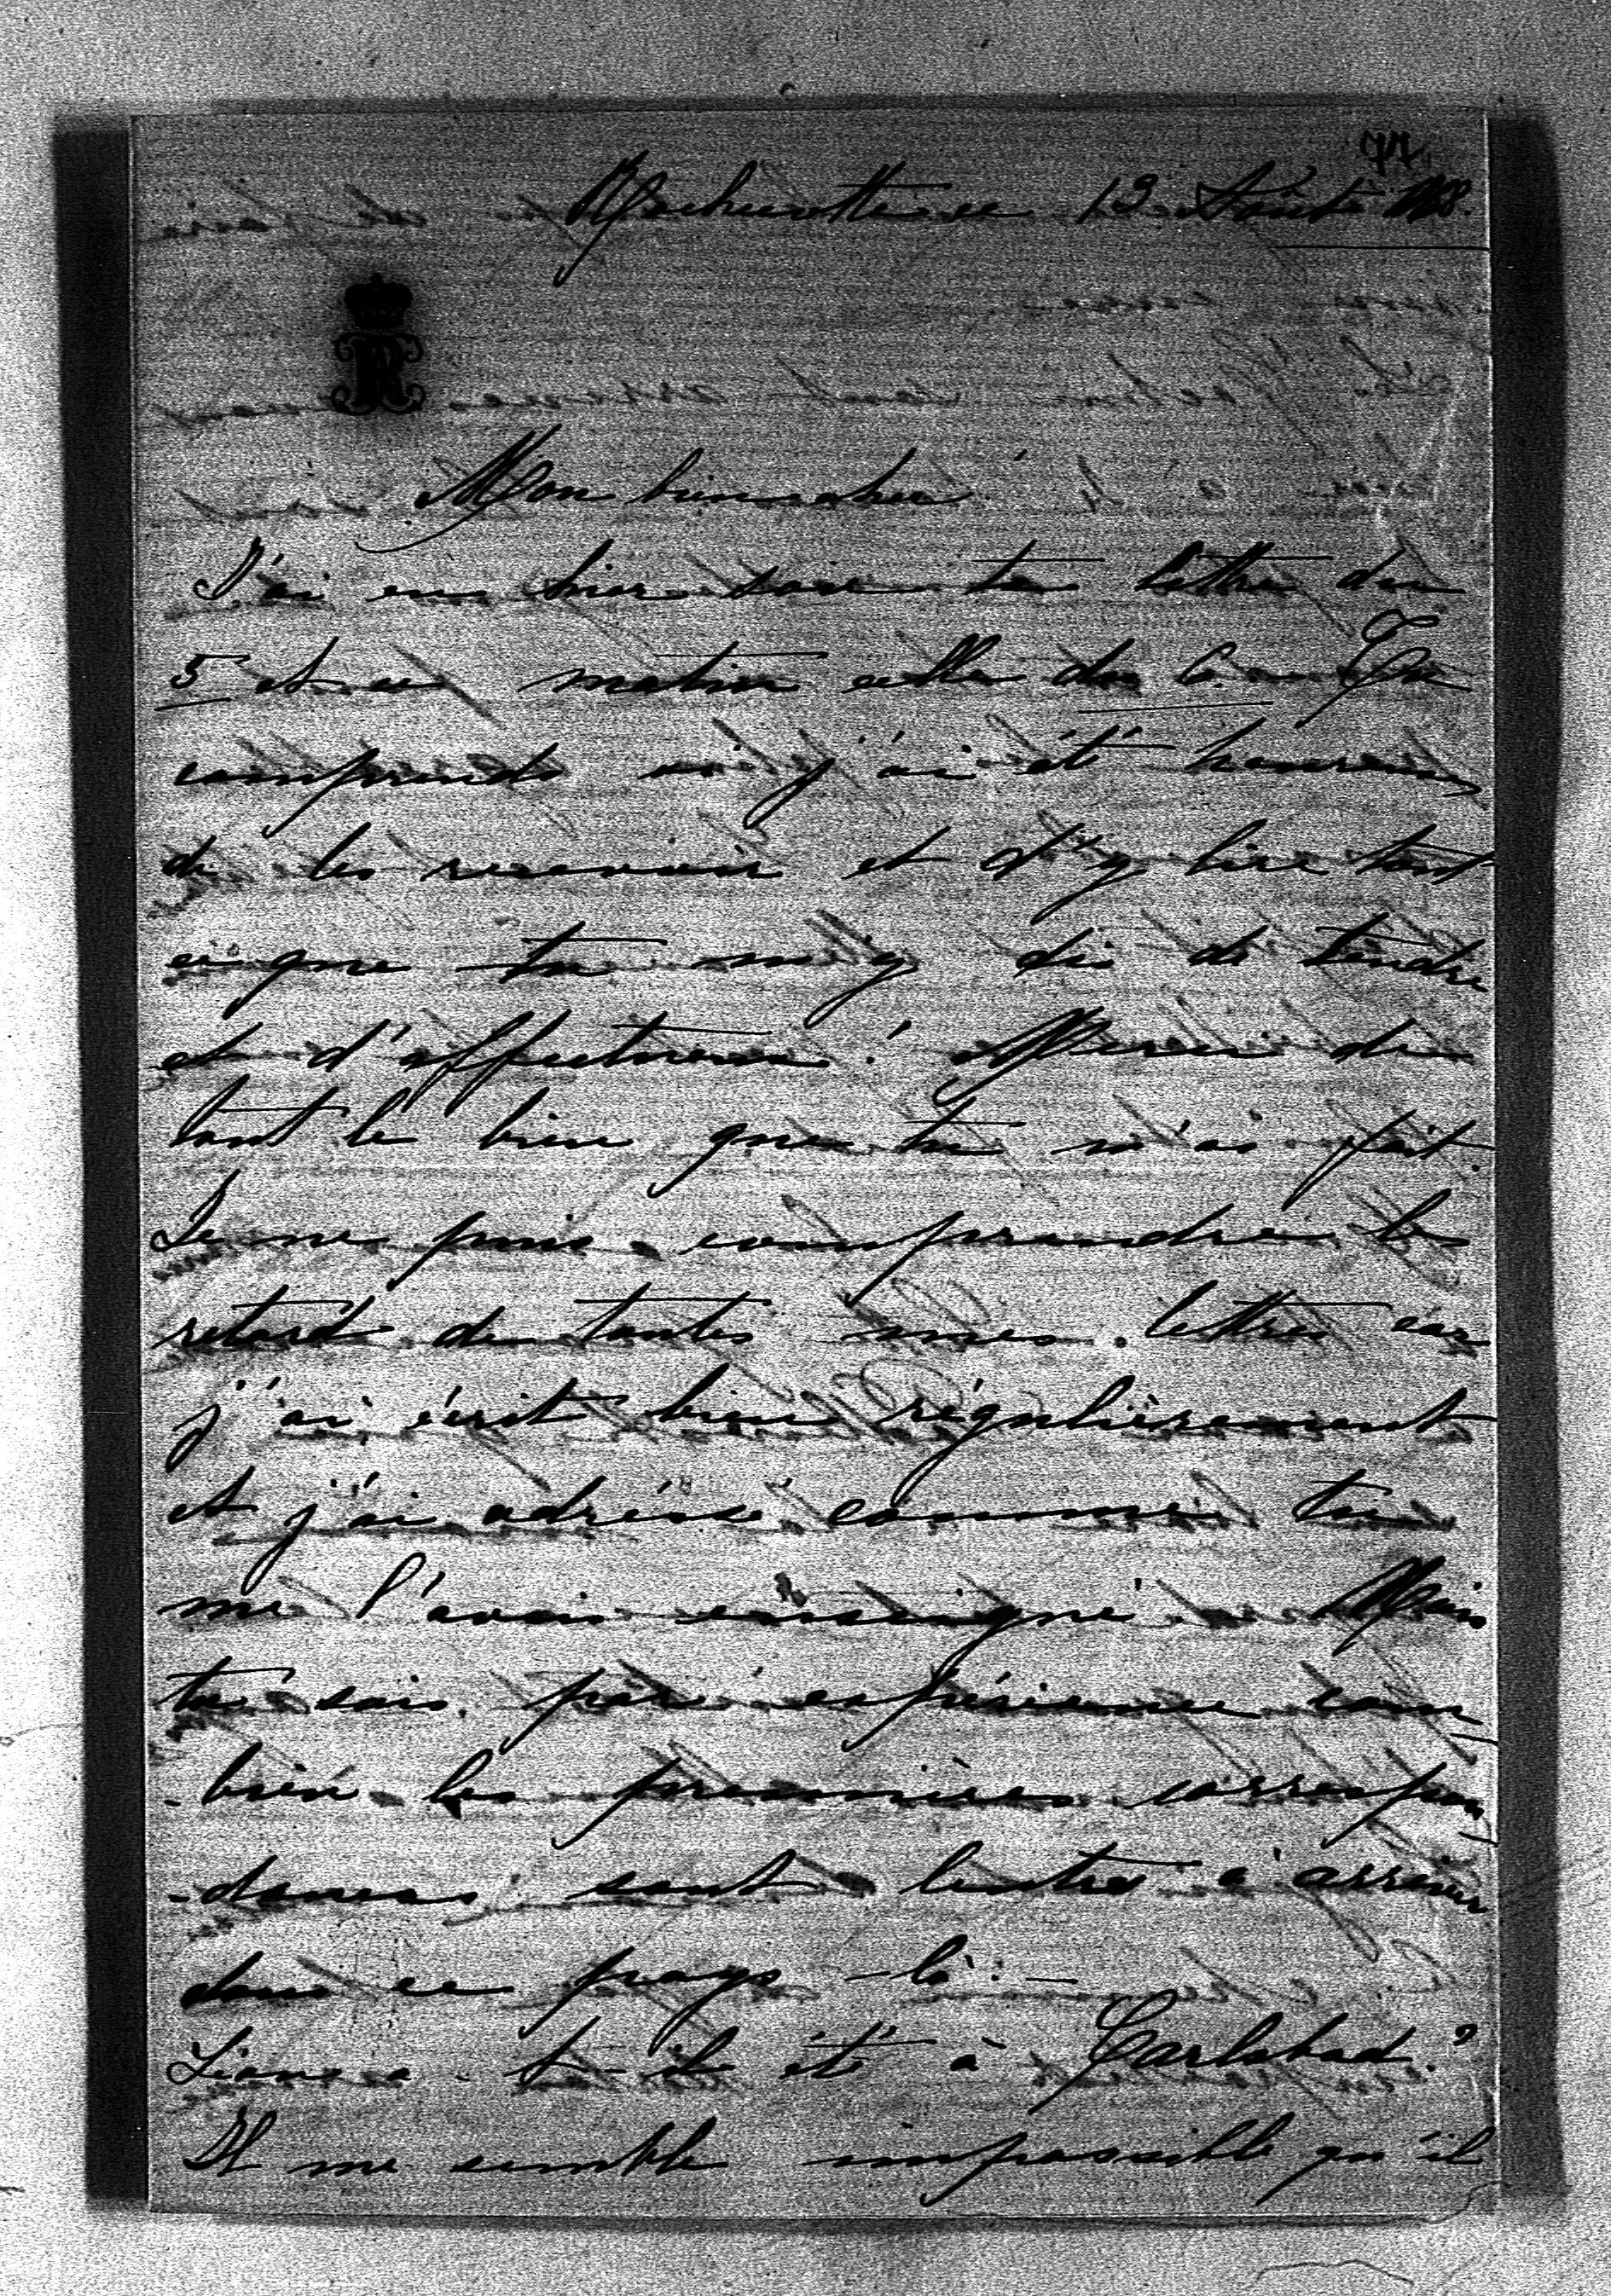 77.
Mechwotte ce 13 Août 188.
R
Mon bien cher
J'ai eu hier soir ta lettre du
5 et ce matin celle du 6. Tu
comprends si j'ai été heureux
de les recevoir et d'y lire tout
ce que tu m'y dis de tendre
et d'affectueux! Merci de
tout le bien que tu m'as fait.
Je ne puis comprendre le
retard de toutes mes lettres car
j'ai écrit bien régulièrement
et j'ai adréssé comme tu
me l'avais enseigné. Mais
tu sais par expérience com
-bien les premières correspon
-dances sont lentes à arriver
dans ce pays-là. —
Léon a-t-il été à Carlsbad?
Il me semble impossible qu'il